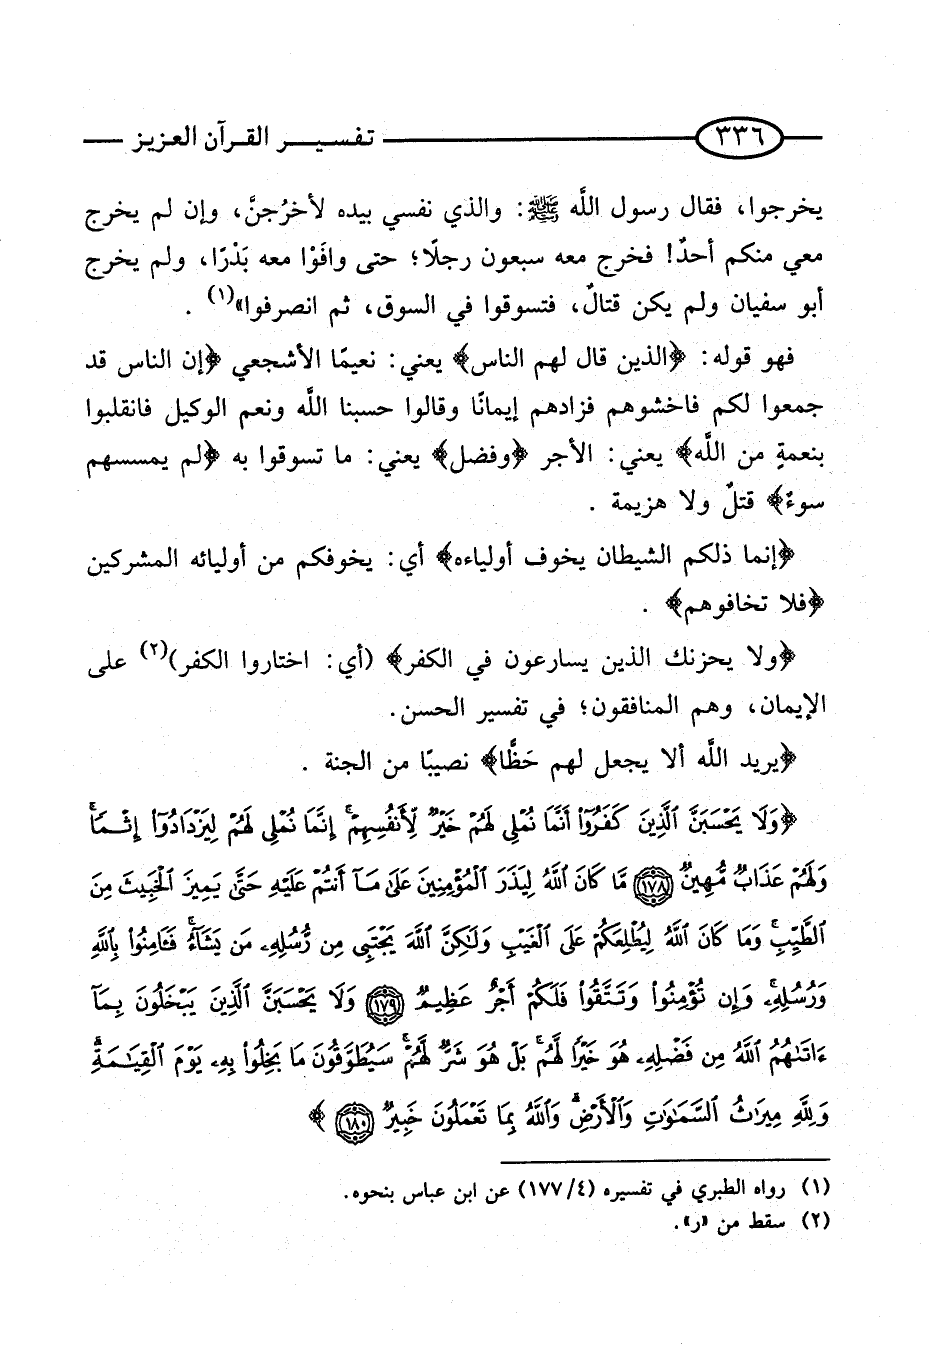 ٣٣٦ تفسير القرآن العزيز
يخرجوا، فقال رسول اللَّه ﷺ: والذي نفسي بيده لأخرُجنَّ، وإن لم يخرج
معي منكم أحدٌ! فخرج معه سبعون رجلًا؛ حتى وافَوْا معه بَدْرًا، ولم يخرج
أبو سفيان ولم يكن قتالٌ، فتسوقوا في السوق، ثم انصرفوا»(١) .
فهو قوله: ﴿الذين قال لهم الناس﴾ يعني: نعيمًا الأشجعي ﴿إن الناس قد
جمعوا لكم فاخشوهم فزادهم إيمانًا وقالوا حسبنا اللَّه ونعم الوكيل فانقلبوا
بنعمةٍ من اللَّه﴾ يعني: الأجر ﴿وفضل﴾ يعني: ما تسوقوا به ﴿لم يمسسهم
سوءٌ﴾ قتلٌ ولا هزيمة .
﴿إنما ذلكم الشيطان يخوف أولياءه﴾ أي: يخوفكم من أوليائه المشركين
﴿فلا تخافوهم﴾ .
﴿ولا يحزنك الذين يسارعون في الكفر﴾ (أي: اختاروا الكفر)(٢) على
الإيمان، وهم المنافقون؛ في تفسير الحسن.
﴿يريد اللَّه ألا يجعل لهم حَظًّا﴾ نصيبًا من الجنة .
﴿وَلَا يَحْسَبَنَّ ٱلَّذِينَ كَفَرُوٓا۟ أَنَّمَا نُمْلِى لَهُمْ خَيْرٌ لِّأَنفُسِهِمْ ۚ إِنَّمَا نُمْلِى لَهُمْ لِيَزْدَادُوٓا۟ إِثْمًا ۚ
وَلَهُمْ عَذَابٌ مُّهِينٌ ١٧٨ مَّا كَانَ ٱللَّهُ لِيَذَرَ ٱلْمُؤْمِنِينَ عَلَىٰ مَآ أَنتُمْ عَلَيْهِ حَتَّىٰ يَمِيزَ ٱلْخَبِيثَ مِنَ
ٱلطَّيِّبِ ۗ وَمَا كَانَ ٱللَّهُ لِيُطْلِعَكُمْ عَلَى ٱلْغَيْبِ وَلَٰكِنَّ ٱللَّهَ يَجْتَبِى مِن رُّسُلِهِۦ مَن يَشَآءُ ۖ فَـَٔامِنُوا۟ بِٱللَّهِ
وَرُسُلِهِۦ ۚ وَإِن تُؤْمِنُوا۟ وَتَتَّقُوا۟ فَلَكُمْ أَجْرٌ عَظِيمٌ ١٧٩ وَلَا يَحْسَبَنَّ ٱلَّذِينَ يَبْخَلُونَ بِمَآ
ءَاتَىٰهُمُ ٱللَّهُ مِن فَضْلِهِۦ هُوَ خَيْرًا لَّهُم ۖ بَلْ هُوَ شَرٌّ لَّهُمْ ۖ سَيُطَوَّقُونَ مَا بَخِلُوا۟ بِهِۦ يَوْمَ ٱلْقِيَٰمَةِ ۗ
وَلِلَّهِ مِيرَٰثُ ٱلسَّمَٰوَٰتِ وَٱلْأَرْضِ ۗ وَٱللَّهُ بِمَا تَعْمَلُونَ خَبِيرٌ ١٨٠﴾
(١) رواه الطبري في تفسيره (٤/ ١٧٧) عن ابن عباس بنحوه.
(٢) سقط من «ر».